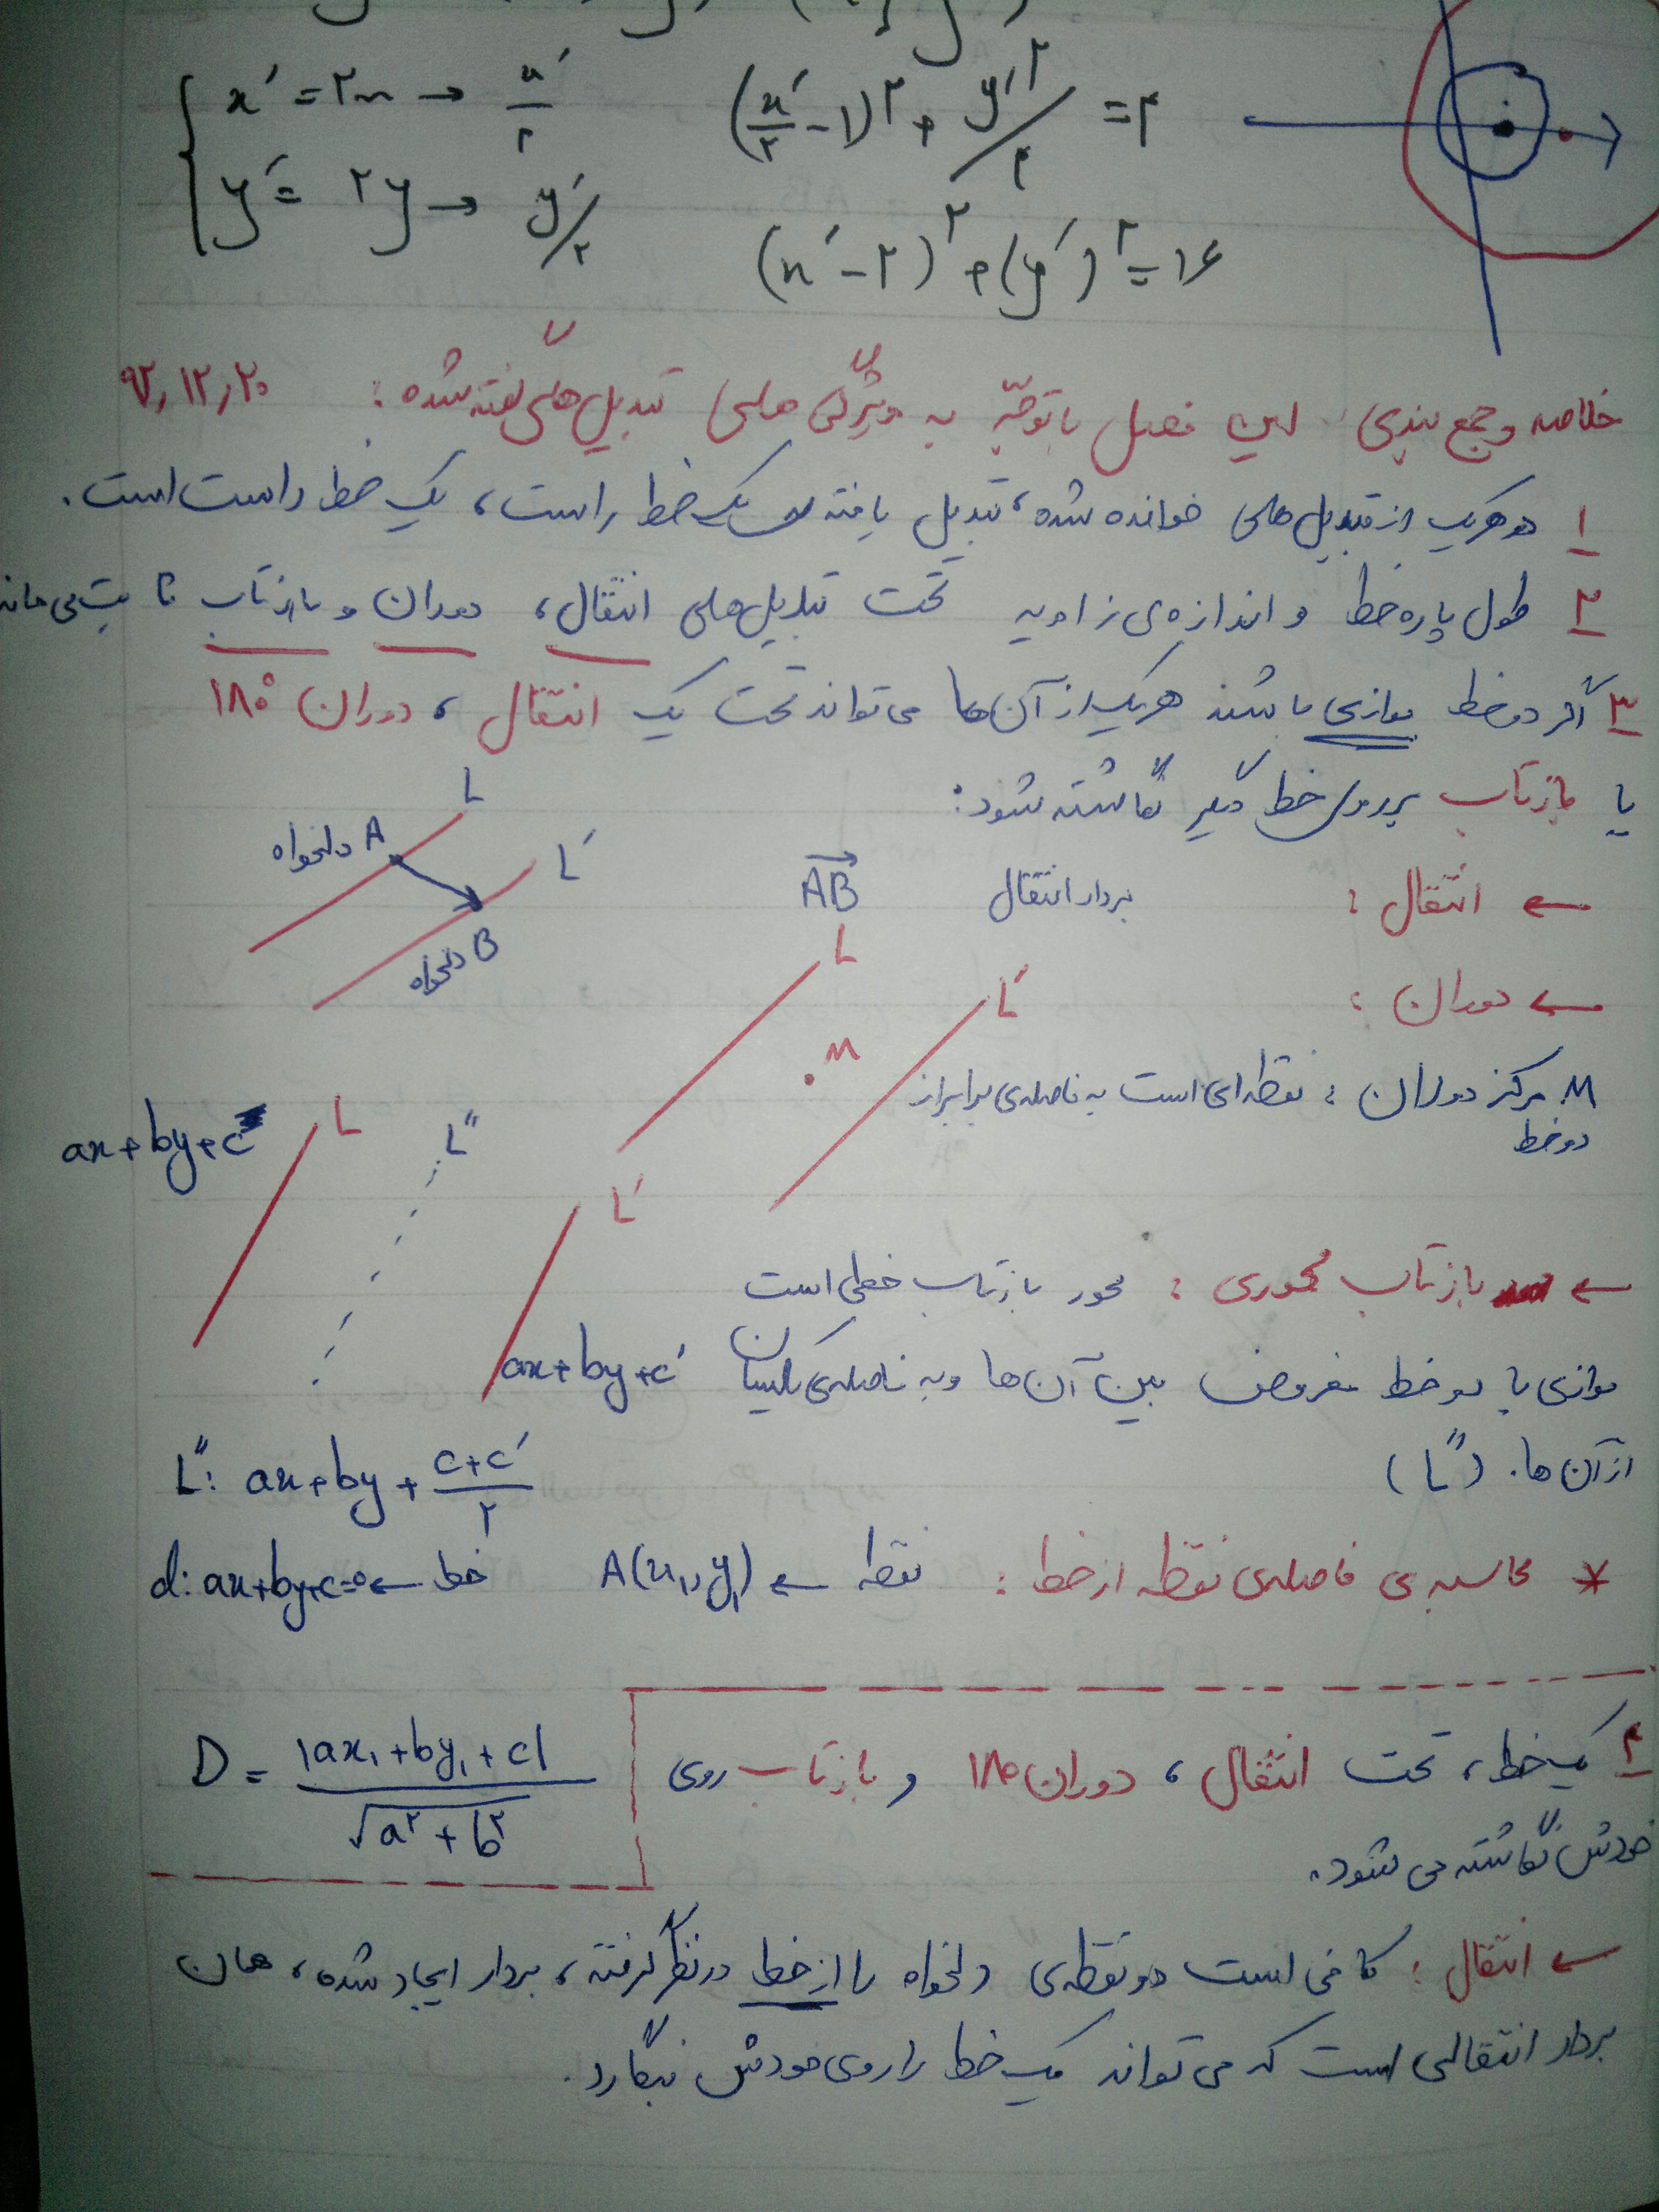 x′ = ۲x → x′/۲
(x′/۲ − ۱)^۲ + y′^۲/۴ = ۴
y′ = ۲y → y′/۲
(x′ − ۲)^۲ + (y′)^۲ = ۱۶
خلاصه و جمع بندی این فصل با توجّه به ویژگی های تبدیل های گفته شده : ۹۲٫۱۲٫۲۰
۱ در هر یک از تبدیل های خوانده شده، تبدیل یافته ی یک خط راست، یک خط راست است.
۲ طول پاره خط و اندازه ی زاویه تحت تبدیل های انتقال، دوران و بازتاب ثابت می ماند
۳ اگر دو خط موازی باشند هر یک از آن ها می تواند تحت یک انتقال، دوران ۱۸۰°
یا بازتاب بر روی خط دیگر نگاشته شود :
L
دلخواه A
L′
دلخواه B
← انتقال : بردار انتقال AB
← دوران :
L
L′
M
M مرکز دوران : نقطه ای است به فاصله ی برابر از
دو خط
ax+by+c
L
L″
L′
← بازتاب محوری : محور بازتاب خطی است
ax+by+c′
موازی با دو خط مفروض بین آن ها و به فاصله ی یکسان
از آن ها. (L″)
L″: ax+by+ (c+c′)/۲
* محاسبه ی فاصله ی نقطه از خط : نقطه ← A(x₁, y₁) خط ← d: ax+by+c=0
D = |ax₁+by₁+c| / √(a^۲+b^۲)
۴ یک خط، تحت انتقال، دوران ۱۸۰ و بازتاب روی
خودش نگاشته می شود.
← انتقال : کافی است دو نقطه ی دلخواه را از خط در نظر گرفته، بردار ایجاد شده، همان
بردار انتقالی است که می تواند یک خط را روی خودش بنگارد.